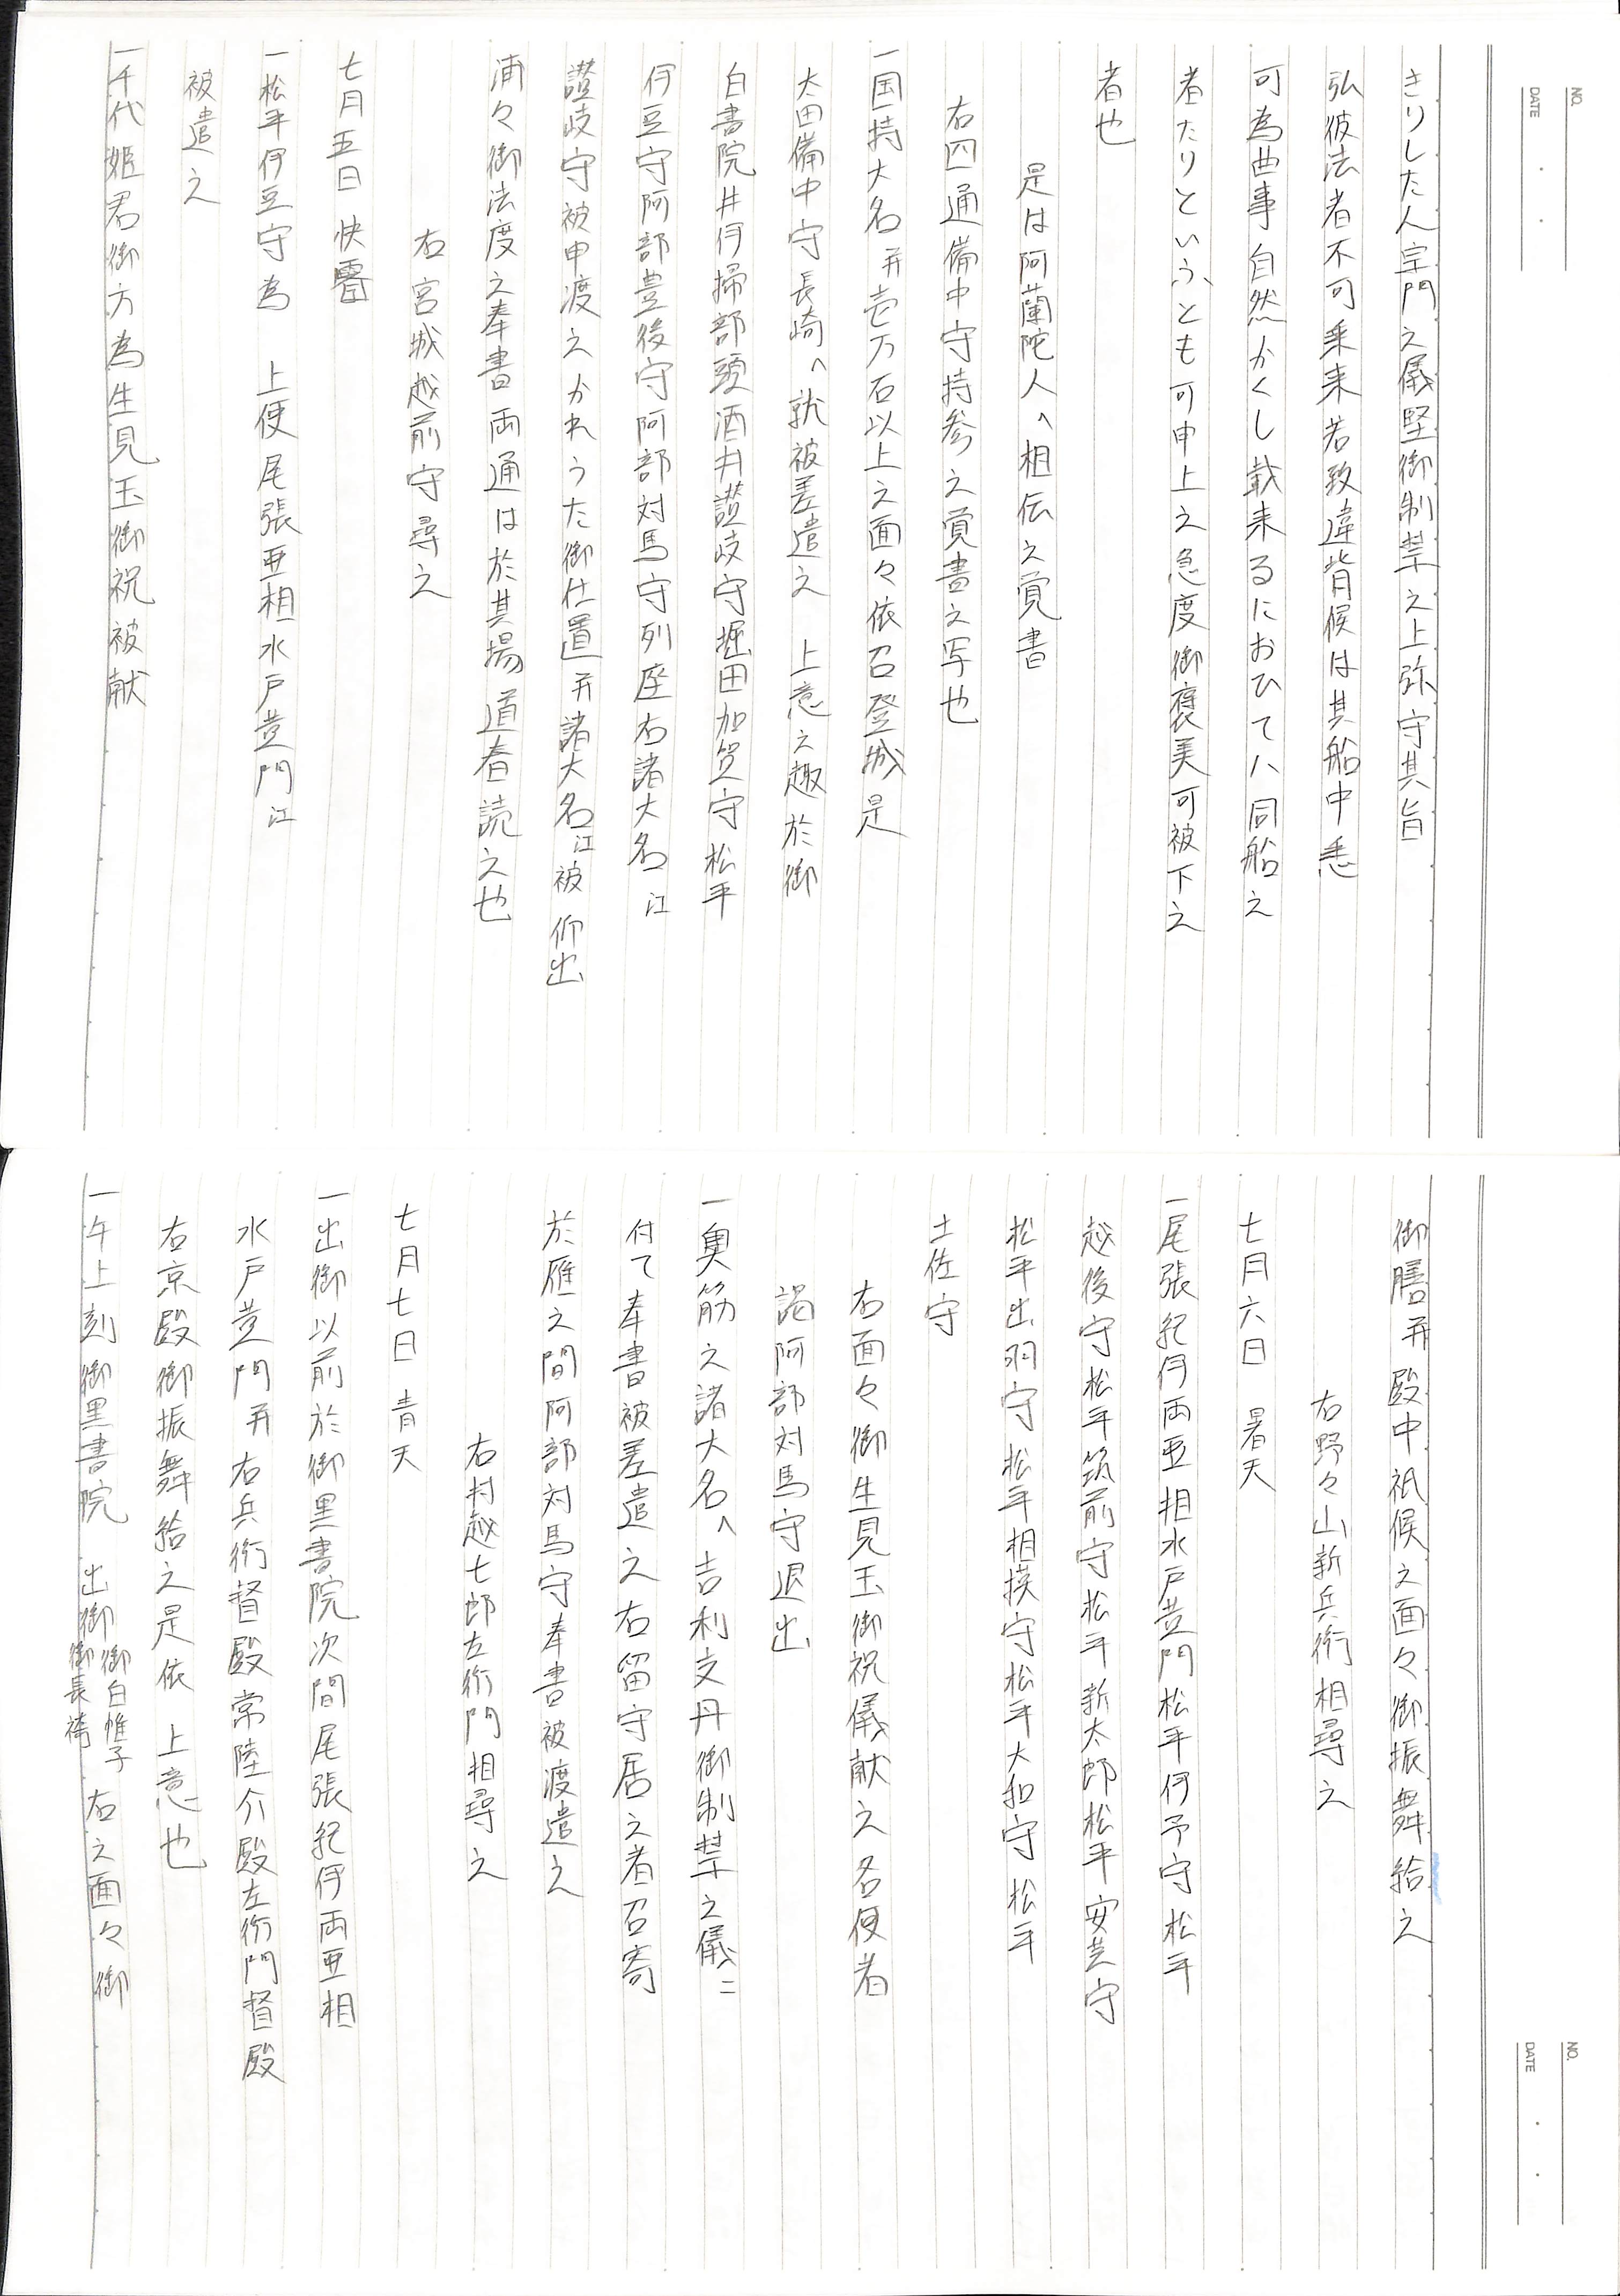 NO.
DATE
きりした人宗門之儀堅御制禁之上弥守其旨
弘彼法者不可乗来若致違背候は其船中悉
可為曲事自然かくし載来るにおひてハ同船之
者たりといふとも可申上之急度御褒美可被下之
者也
是は阿蘭陀人へ相伝之覚書
右四通備中守持参之覚書之写也
一国持大名并壱万石以上之面々依召登城是
太田備中守長崎へ就被差遣之　上意之趣於御
白書院井伊掃部頭酒井讃岐守堀田加賀守松平
伊豆守阿部豊後守阿部対馬守列座右諸大名江
讃岐守被申渡之かれうた御仕置并諸大名江被仰出
浦々御法度之奉書両通は於其場道春読之也
右宮城越前守尋之
七月五日 快霽
一松平伊豆守為　上使尾張亜相水戸黄門江
被遣之
一千代姫君御方為生見玉御祝被献
NO.
DATE
御膳并殿中祇候之面々御振舞給之
右野々山新兵衛相尋之
七月六日　暑天
一尾張紀伊両亜相水戸黄門松平伊予守松平
越後守松平筑前守松平新太郎松平安芸守
松平出羽守松平相模守松平大和守松平
土佐守
右面々御生見玉御祝儀献之各使者
謁阿部対馬守退出
一奥筋之諸大名へ吉利支丹御制禁之儀ニ
付て奉書被差遣之右留守居之者召寄
於雁之間阿部対馬守奉書被渡遣之
右村越七郎左衛門相尋之
七月七日 青天
一出御以前於御黒書院次間尾張紀伊両亜相
水戸黄門并右兵衛督殿常陸介殿左衛門督殿
右京殿御振舞給之是依　上意也
一午上刻御黒書院　出御 御白帷子 御長袴 右之面々御